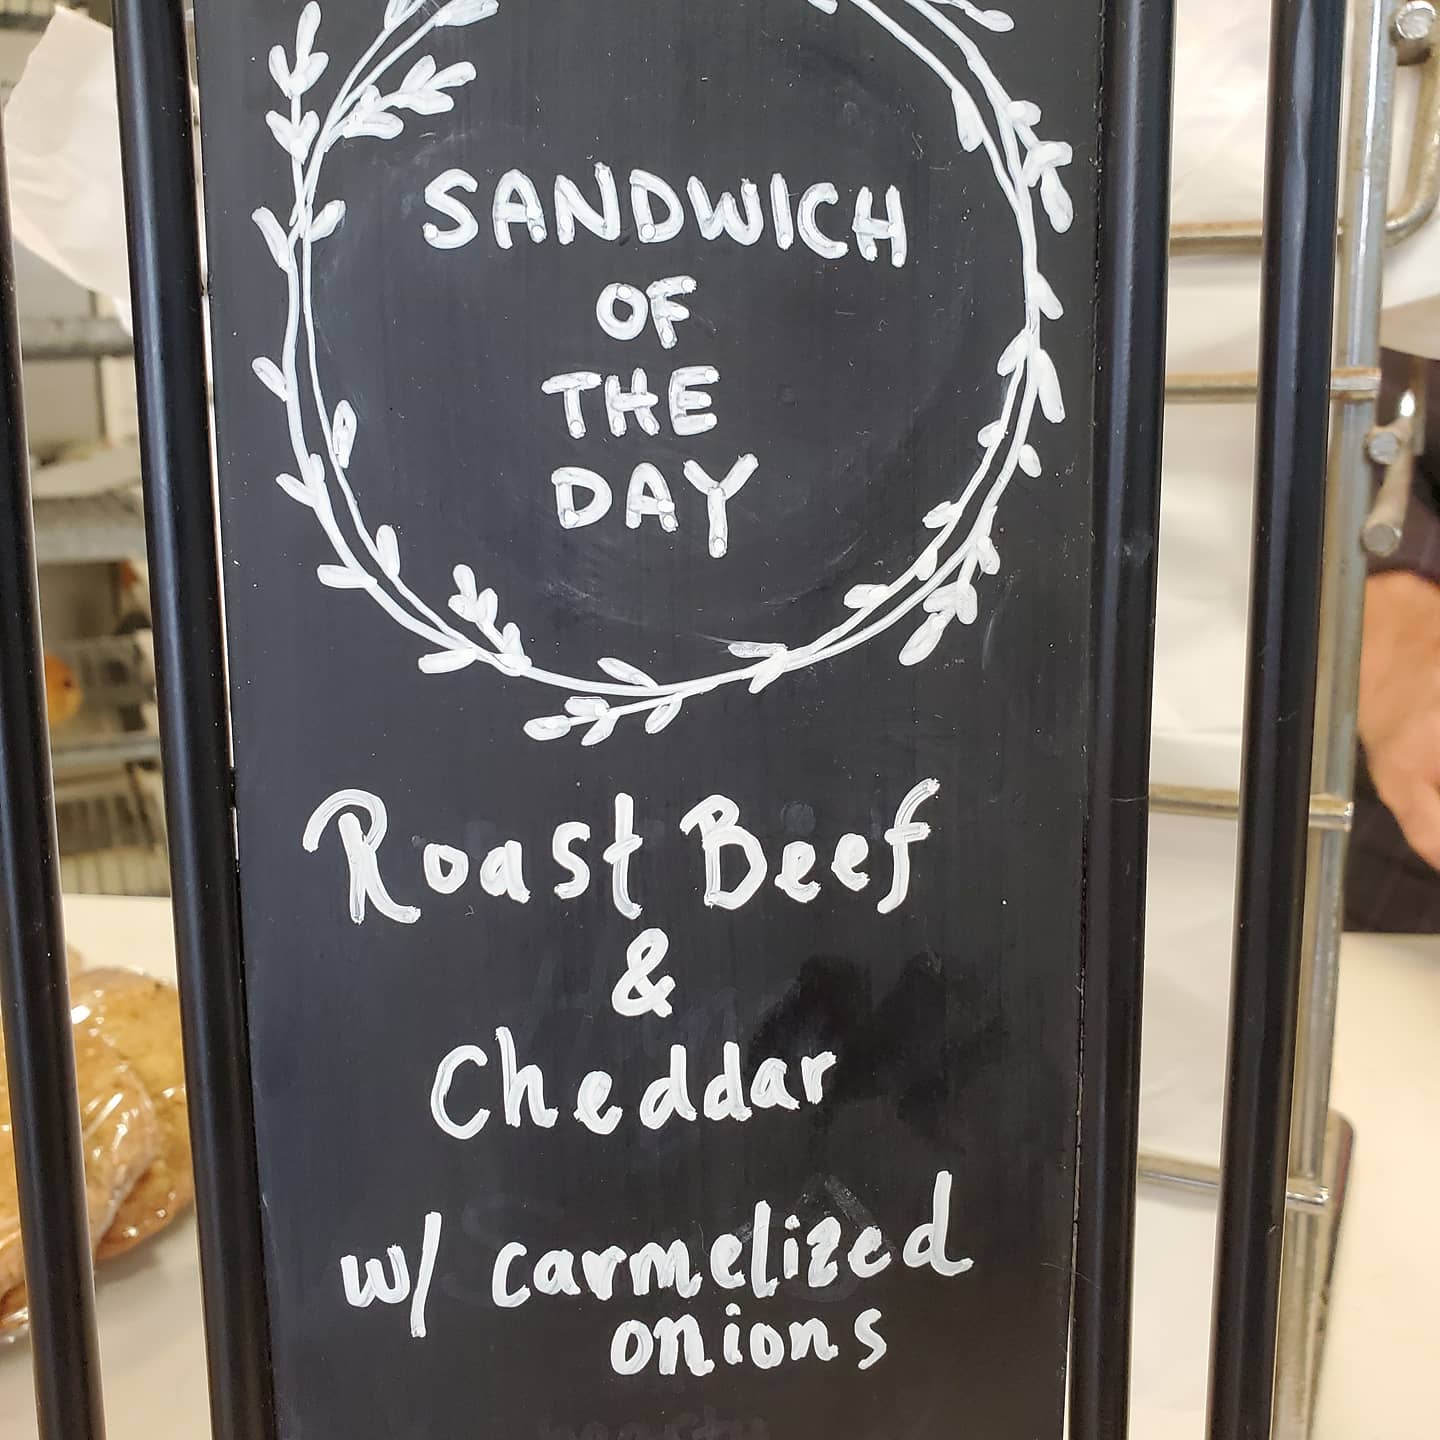 SANDWICH
OF
THE
DAY
Roast Beef
&
Cheddar
w/ carmelized
onions